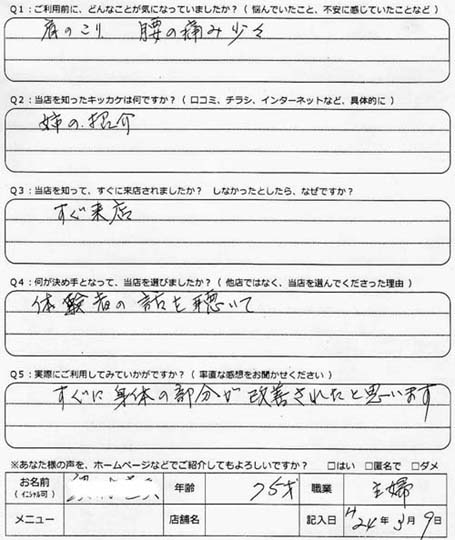 Q1：ご利用前に、どんなことが気になっていましたか？（ 悩んでいたこと、不安に感じていたことなど ）
肩のこり 腰の痛み少々
Q2：当店を知ったキッカケは何ですか？（ 口コミ、チラシ、インターネットなど、具体的に ）
姉の紹介
Q3：当店を知って、すぐに来店されましたか？ しなかったとしたら、なぜですか？
すぐ来店
Q4：何が決め手となって、当店を選びましたか？（ 他店ではなく、当店を選んでくださった理由 ）
体験者の話を聴いて
Q5：実際にご利用してみていかがですか？（ 率直な感想をお聞かせください ）
すぐに身体の部分が改善されたと思います
※あなた様の声を、ホームページなどでご紹介してもよろしいですか？ □はい □匿名で □ダメ
お名前 年齢 75才 職業 主婦
（ イニシャル可 ）
メニュー 店舗名 記入日 H24年3月9日